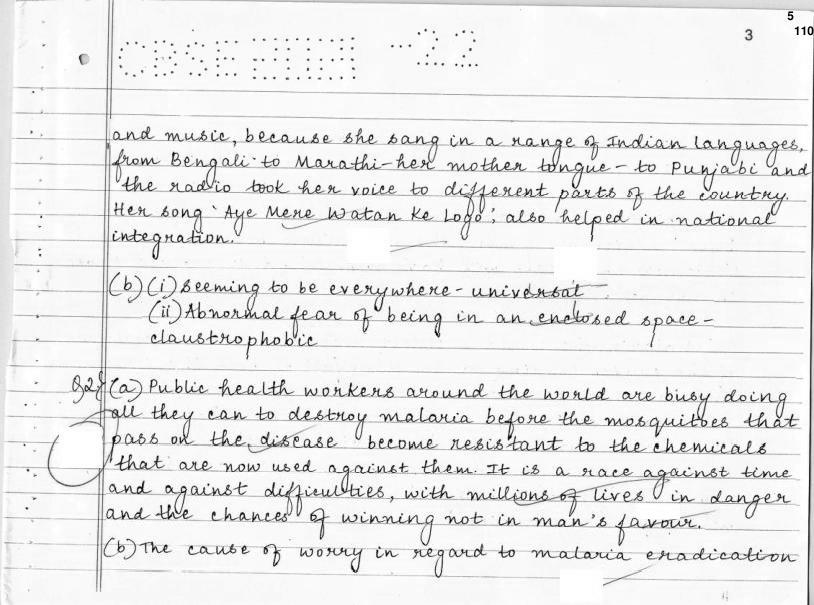 5
3
110
CBSE -22
and music, because she sang in a range of Indian languages,
from Bengali to Marathi-her mother tongue - to Punjabi and
the radio took her voice to different parts of the country.
Her song 'Aye Mere Watan Ke Logo', also helped in national
integration.
(b) (i) Seeming to be everywhere - universal
(ii) Abnormal fear of being in an enclosed space -
claustrophobic
Q2} (a) Public health workers around the world are busy doing
all they can to destroy malaria before the mosquitoes that
pass on the disease become resistant to the chemicals
that are now used against them. It is a race against time
and against difficulties, with millions of lives in danger
and the chances of winning not in man's favour.
(b) The cause of worry in regard to malaria eradication